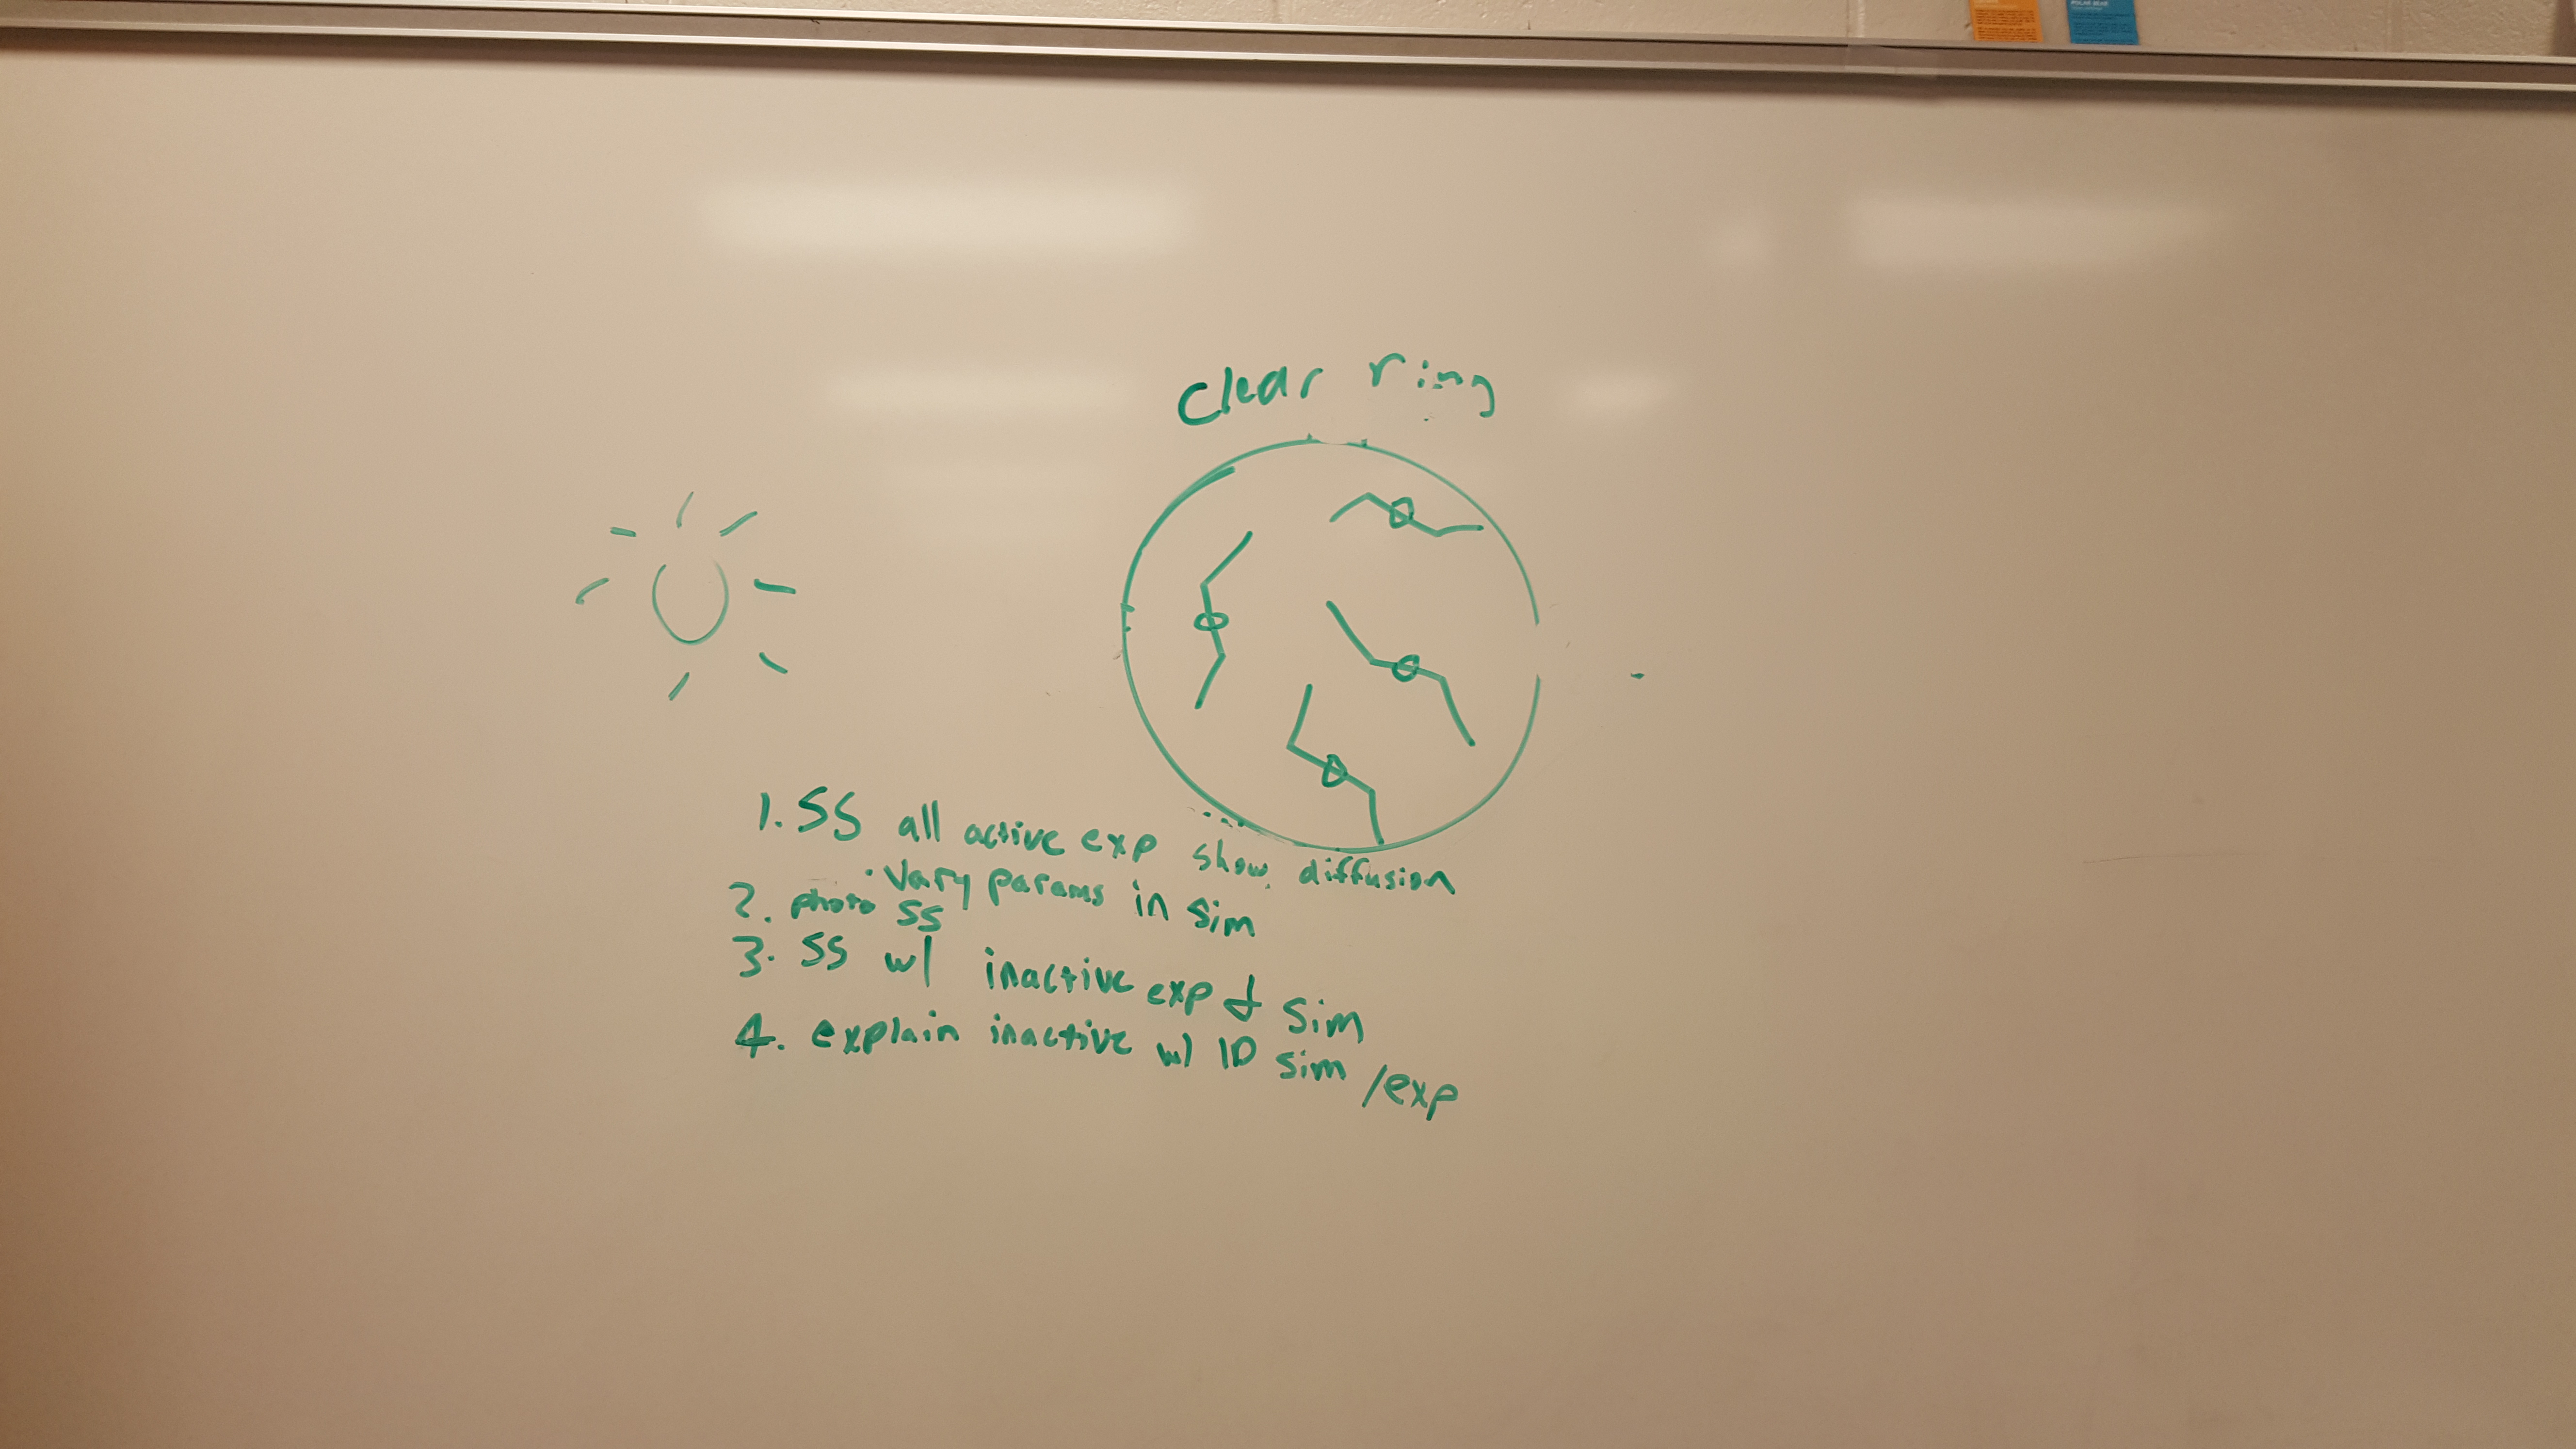 POLAR BEAR
Clear ring
1. SS all active exp show diffusion
• Vary params in sim
2. photo SS
3. SS w/ inactive exp & sim
4. explain inactive w/ 1D sim /exp